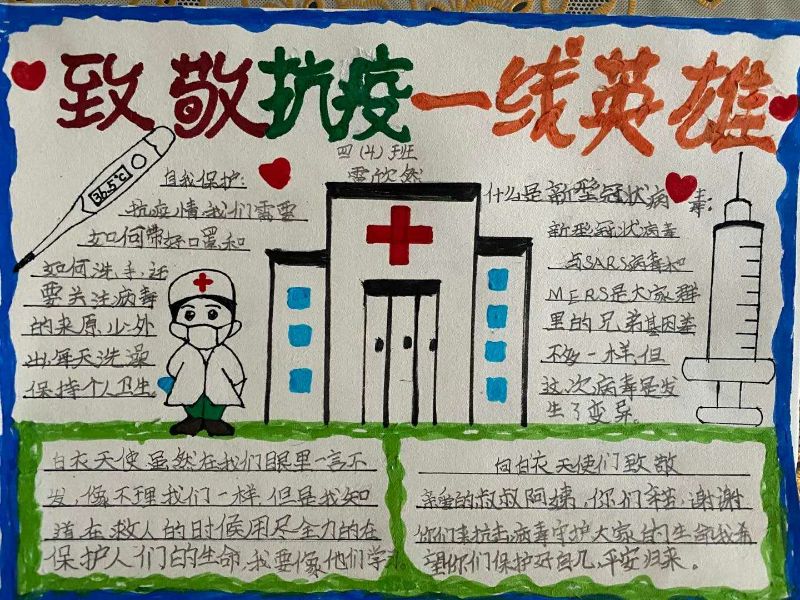 致敬抗疫一线英雄
四(4)班
雷欣然
36.5℃
自我保护:
抗疫情我们需要
如何带好口罩和
如何洗手,还
要关注病毒
的来原,少外
出,每天洗澡
保持个人卫生。
什么是新型冠状病毒:
新型冠状病毒
与SARS病毒和
MERS是大家群
里的兄弟基因差
不多一样,但
这次病毒是发
生了变异。
白衣天使虽然在我们眼里一言不
发,像不理我们一样,但是我知
道在救人的时候用尽全力的在
保护人们的生命,我要像他们学习。
向白衣天使们致敬
亲爱的叔叔阿姨,你们辛苦,谢谢
你们来抗击病毒守护大家的生命我希
望你们保护好自几,平安归来。